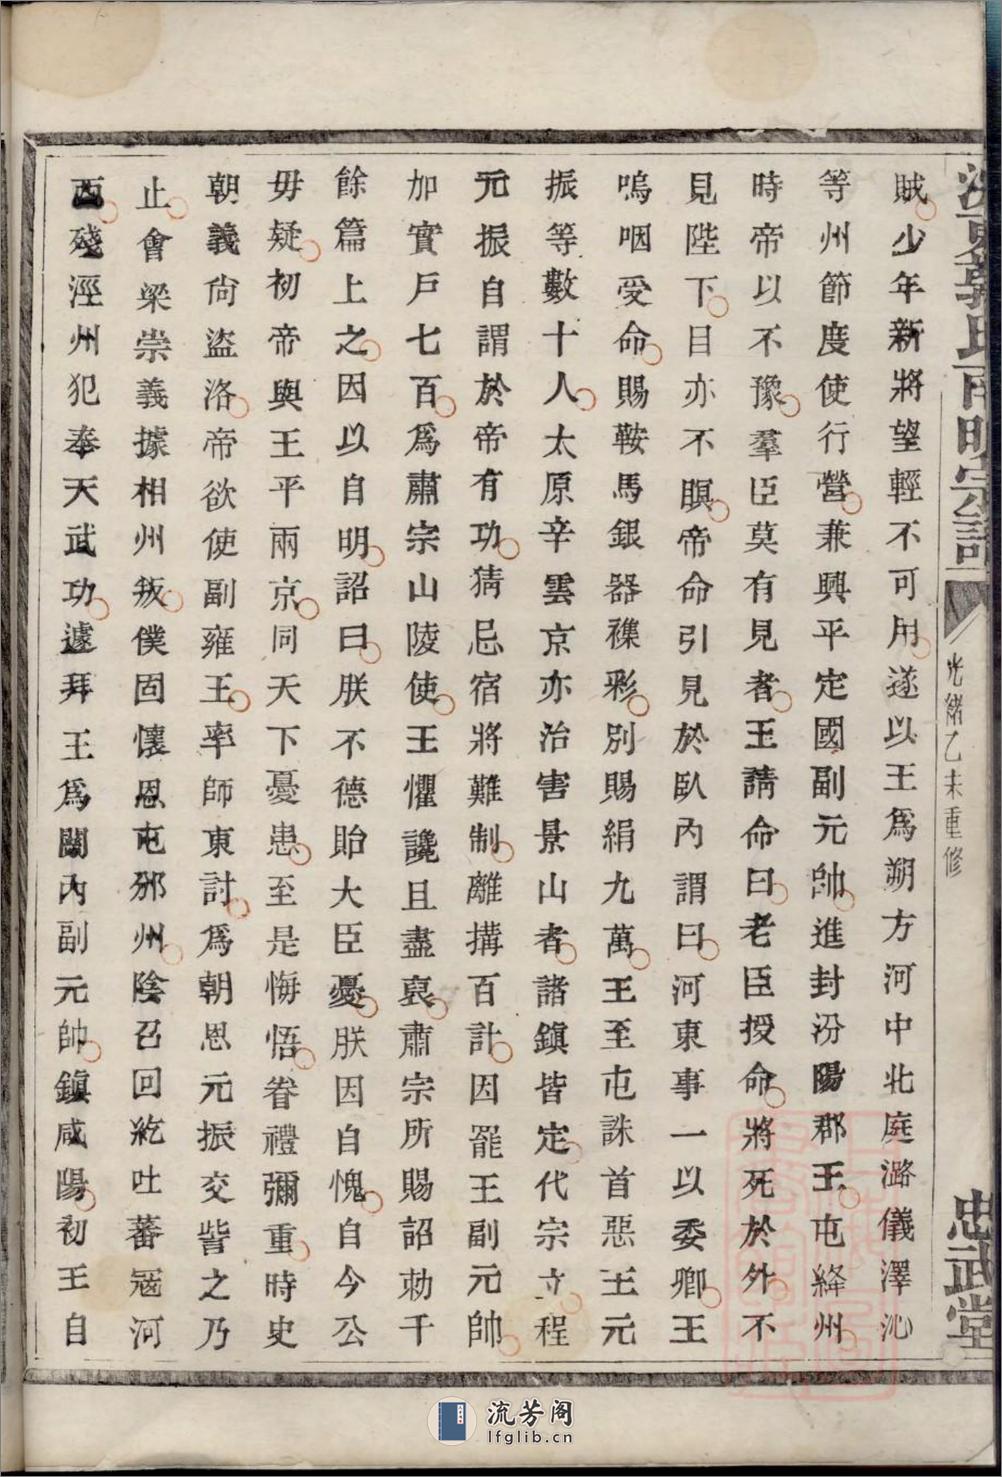 賊少年新將望輕不可用遂以王爲朔方河中北庭潞儀澤沁
等州節度使行營兼興平定國副元帥進封汾陽郡王屯絳州
時帝以不豫羣臣莫有見者王請命曰老臣授命將死於外不
見陛下目亦不瞑帝命引見於臥內謂曰河東事一以委卿王
嗚咽受命賜鞍馬銀器襍彩別賜絹九萬王至屯誅首惡王元
振等數十人太原辛雲京亦治害景山者諸鎮皆定代宗立程
元振自謂於帝有功猜忌宿將難制離搆百計因罷王副元帥
加實戶七百爲肅宗山陵使王懼讒且盡裒肅宗所賜詔勅千
餘篇上之因以自明詔曰朕不德貽大臣憂朕因自愧自今公
毋疑初帝與王平兩京同天下憂患至是悔悟眷禮彌重時史
朝義尙盜洛帝欲使副雍王率師東討爲朝恩元振交訾之乃
止會梁崇義據相州叛僕固懷恩屯邠州陰召回紇吐蕃寇河
西殘涇州犯奉天武功遽拜王爲關內副元帥鎮咸陽初王自
氏南明宗譜
光緒乙未重修
忠武堂
流芳阁
lfglib.cn